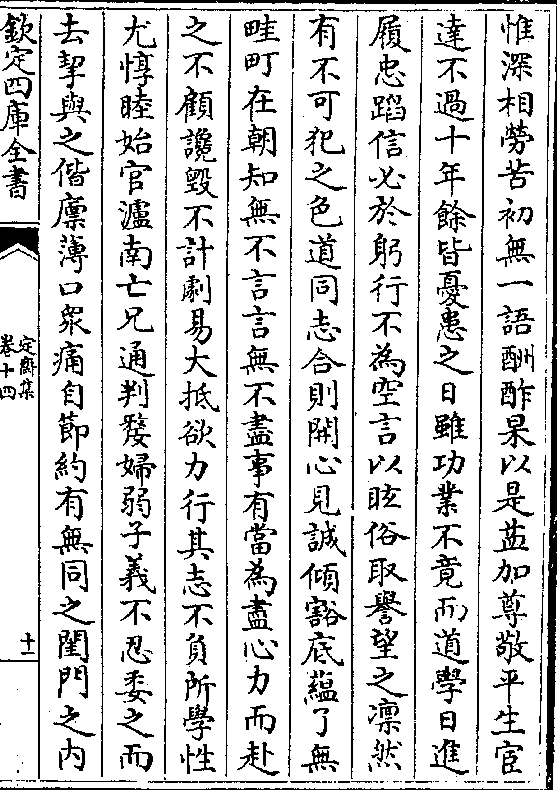 惟深相勞苦初無一語酬酢杲以是益加尊敬平生宦
達不過十年餘皆憂患之日雖功業不竟而道學日進
履忠蹈信必於躬行不為空言以眩俗取譽望之凛然
有不可犯之色道同志合則開心見誠傾豁底蘊了無
畦町在朝知無不言言無不盡事有當為盡心力而赴
之不顧讒毁不計劇易大抵欲力行其志不負所學性
尤惇睦始官瀘南亡兄通判嫠婦弱子義不忍委之而
去挈與之偕廪薄口衆痛自節約有無同之閨門之内
欽定四庫全書
定齋集
卷十四
十一